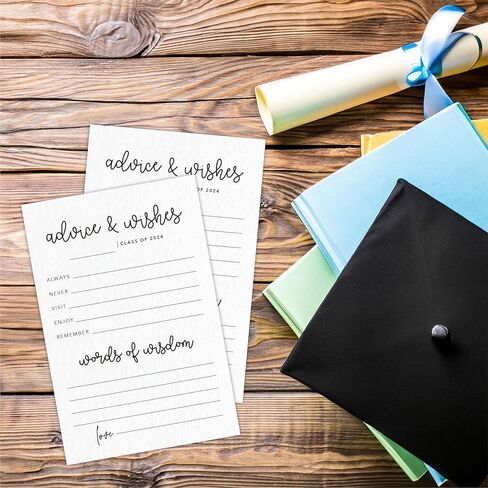 advice & wishes
S OF 2024
advice & wishes
| CLASS OF 2024
ALWAYS
NEVER
VISIT
ENJOY
REMEMBER
words of wisdom
love